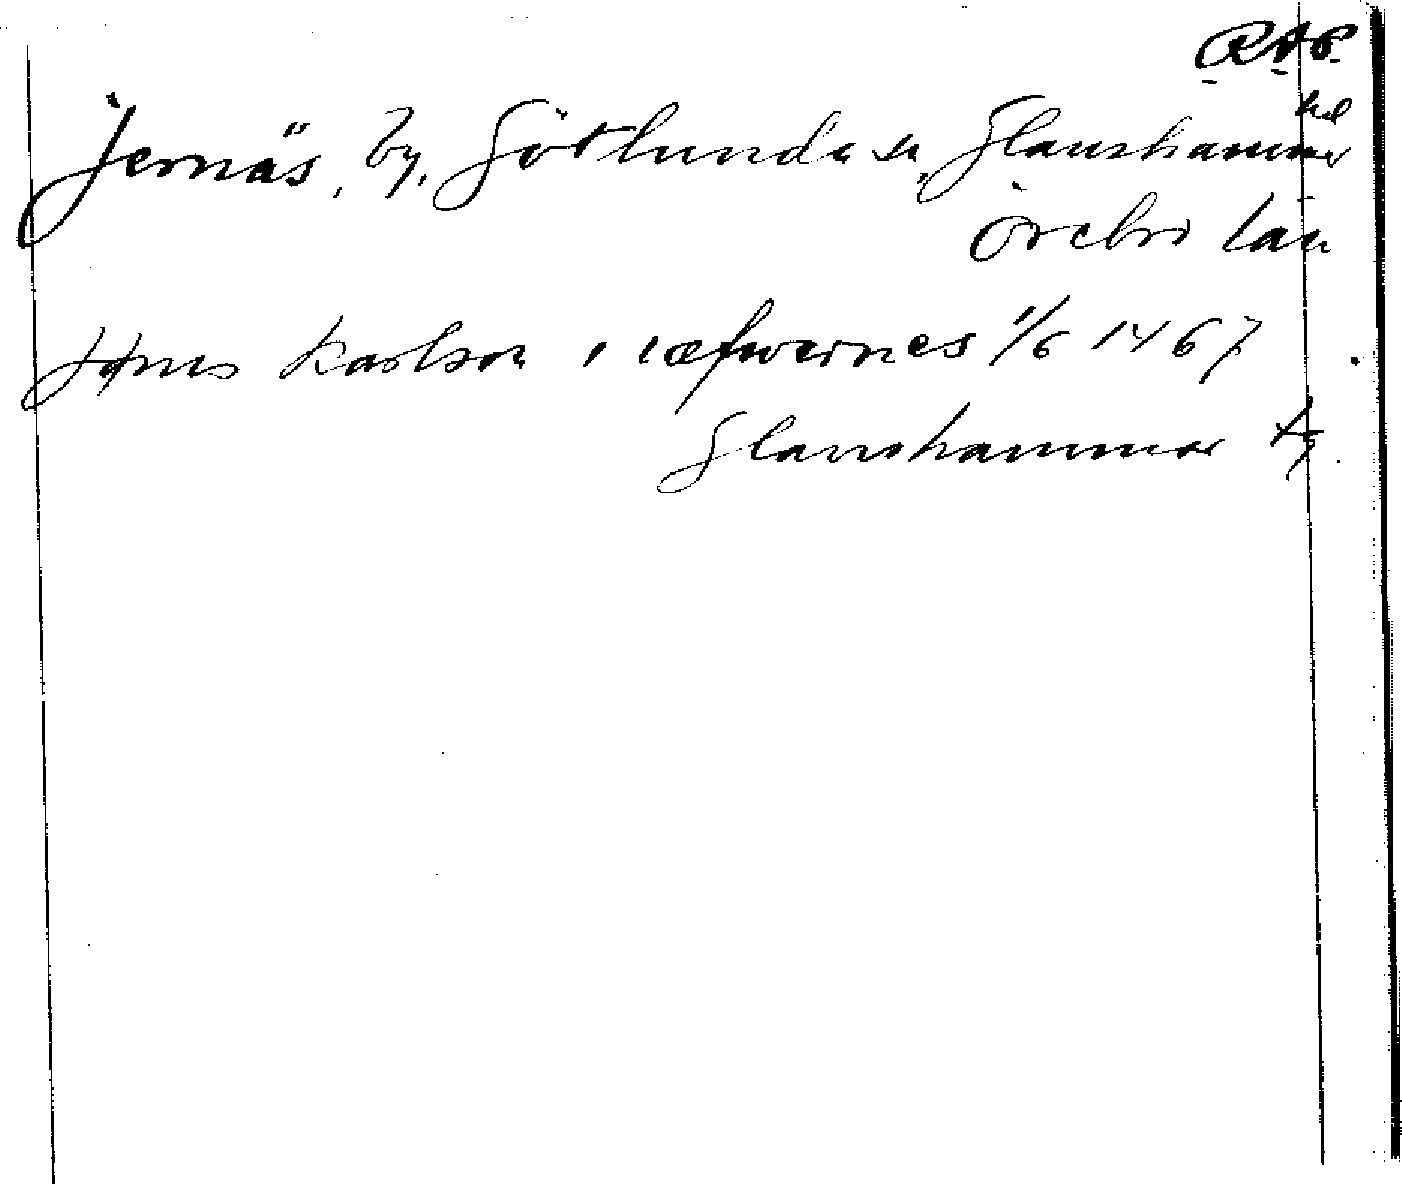 R.A.P.
Jernäs, by, Götlunda sn, Glanshammar hd
Örebro län
Jöns Karlson i iæfwernes 1/6 1467
Glanshammar